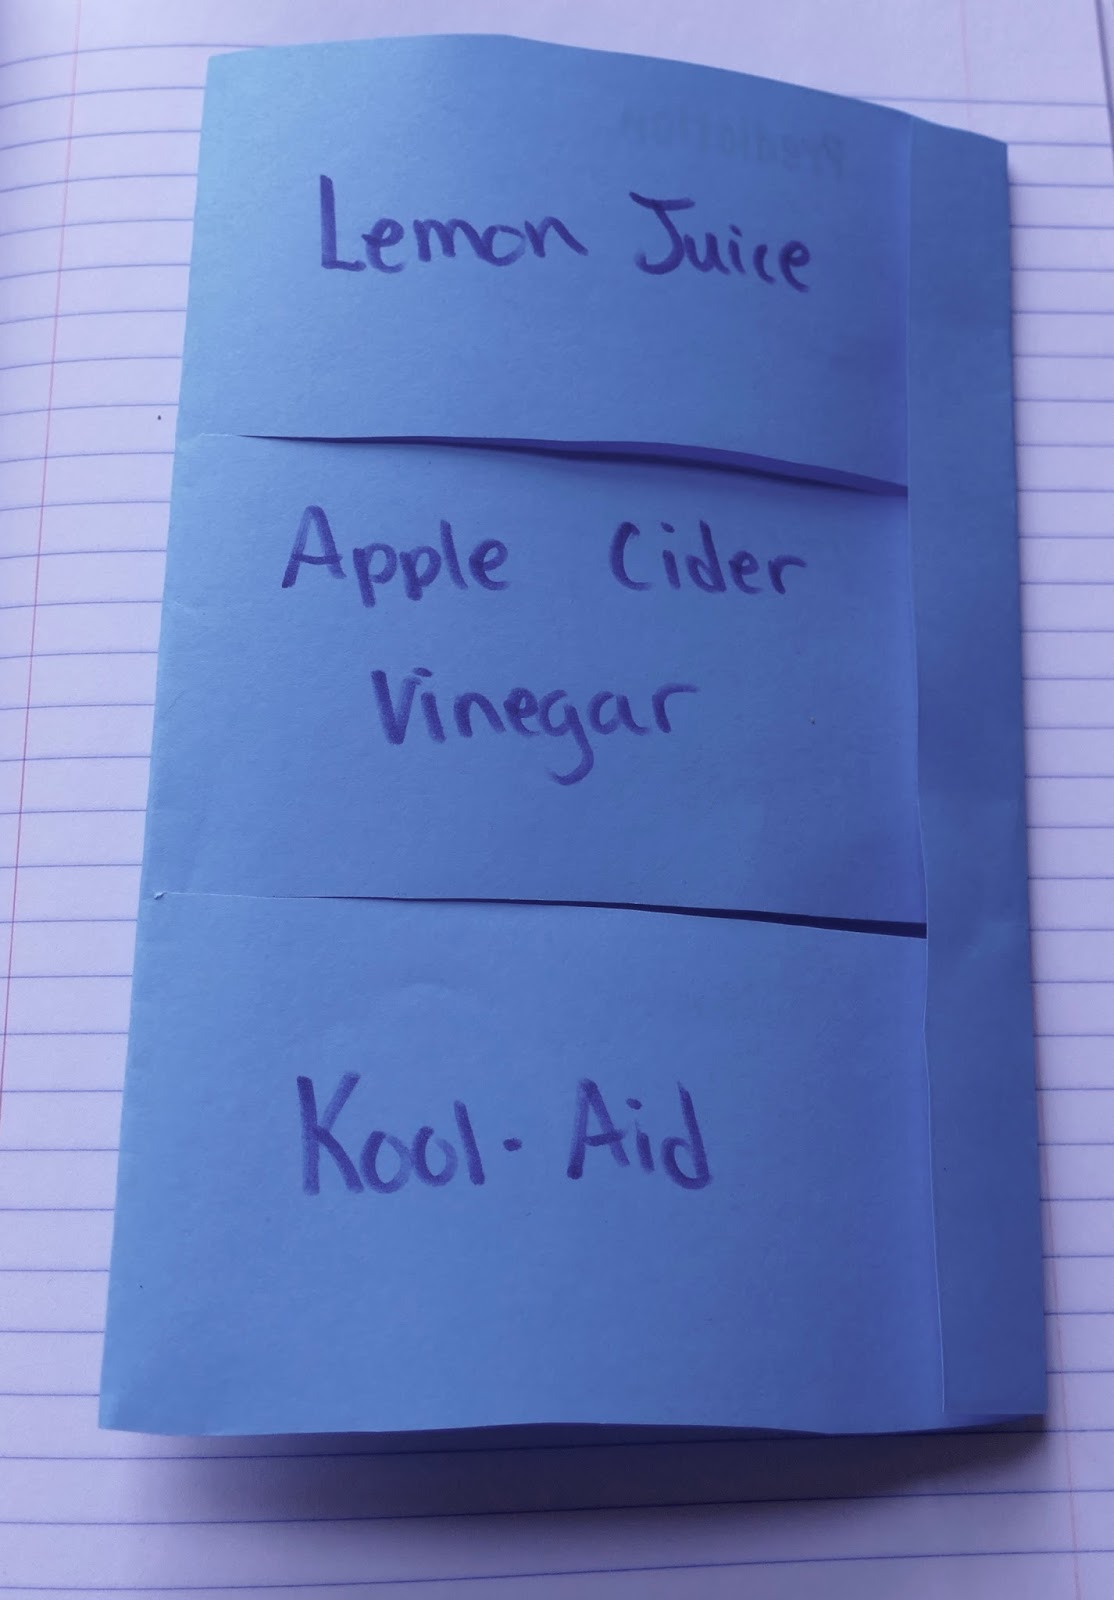 Prediction
Lemon Juice
Apple Cider
Vinegar
Kool-Aid